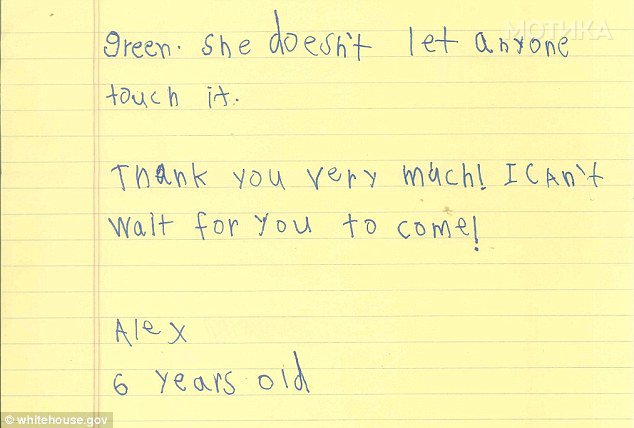 МОТИКА
green. she doesn't let anyone
touch it.
Thank you very much! I CAn't
wait for you to come!
Alex
6 years old
© whitehouse.gov